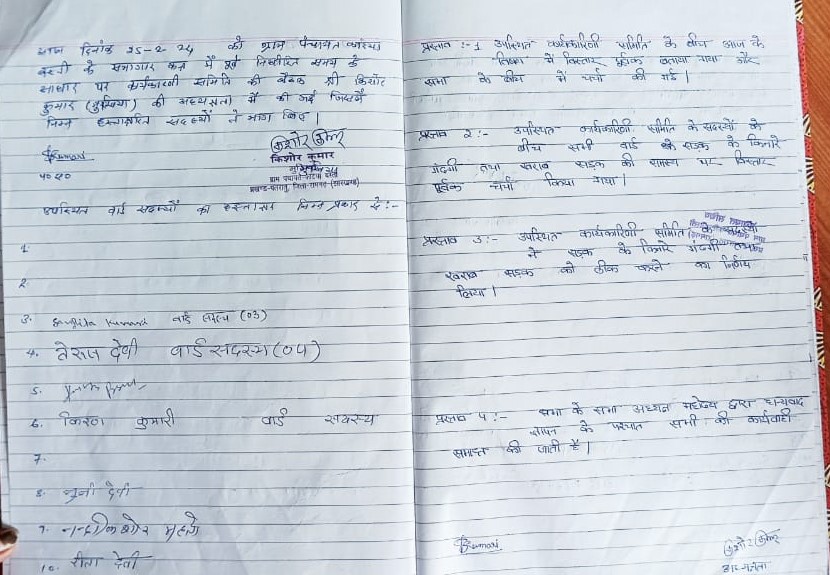 आज दिनांक 25-2-24 को ग्राम पंचायत
बस्ती के सभागार कक्ष में पूर्व निर्धारित समय के
आधार पर कार्यकारणी समिति की बैठक श्री किशोर
कुमार (मुखिया) की अध्यक्षता में की गई जिसमें
निम्न हस्ताक्षरित सदस्यों ने भाग लिए |
किशोर कुमार
Kumari
किशोर कुमार
मुखिया
पं० स०
ग्राम पंचायत
उपस्थित वार्ड सदस्यों का हस्ताक्षर निम्न प्रकार है :-
1.
2
3. Sangita Kumari वार्ड सदस्य (03)
4. देवी वार्ड सदस्य (04)
5.
6. किरण कुमारी वार्ड सदस्य
7.
8. मुनी देवी
9. महतो
10. रीता देवी
प्रस्ताव :- 1 उपस्थित कार्यकारिणी समिति के बीच आज के
विस्तार पूर्वक बताया गया और
सभा के बीच में चर्चा की गई |
प्रस्ताव 2 :- उपस्थित कार्यकारिणी समिति के सदस्यों के
बीच सभी वार्ड के सड़क के किनारे
गंदगी तथा खराब सड़क की समस्या पर विस्तार
पूर्वक चर्चा किया गया |
प्रस्ताव 3 :- उपस्थित कार्यकारिणी समिति के सदस्यों
ने सड़क के किनारे गंदगी तथा
खराब सड़क को ठीक करने का निर्णय
लिया |
प्रस्ताव 4 :- सभा के सभा अध्यक्ष महोदय द्वारा धन्यवाद
ज्ञापन के पश्चात सभी की कार्यवाही
समाप्त की जाती है |
Kumari
किशोर कुमार